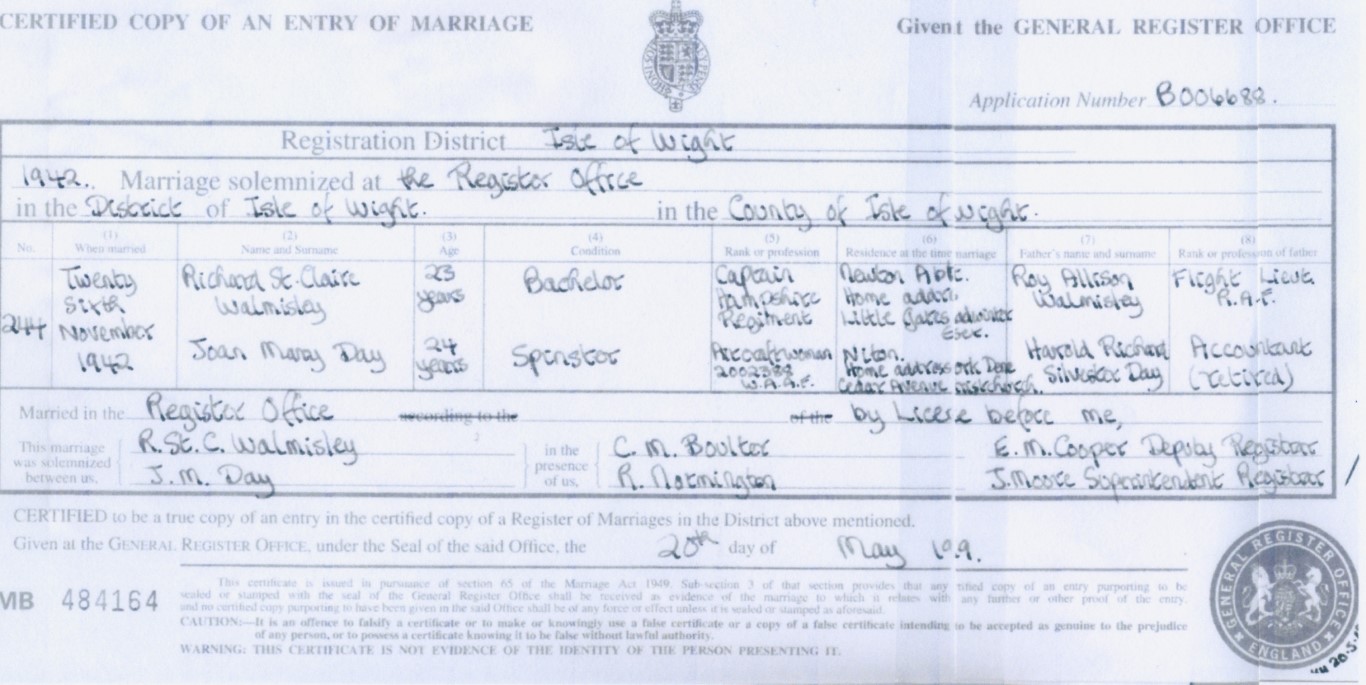 CERTIFIED COPY OF AN ENTRY OF MARRIAGE
Given t the GENERAL REGISTER OFFICE
Application Number B006688.
Registration District Isle of Wight
1942. Marriage solemnized at the Register Office
in the District of Isle of Wight. in the County of Isle of Wight.
No. (1) When married (2) Name and Surname (3) Age (4) Condition (5) Rank or profession (6) Residence at the time marriage (7) Father's name and surname (8) Rank or profession of father
244 Twenty Sixth November 1942
Richard St. Claire Walmisley
23 years
Bachelor
Captain Hampshire Regiment
Newton
Home
Little
Roy Allison Walmisley
Flight Lieut R.A.F.
Joan Mary Day
24 years
Spinster
Aircraftwoman 2002388 W.A.A.F.
Niton.
Home address
Cedar Avenue
Harold Richard Silvester Day
Accountant (retired)
Married in the Register Office according to the of the by Licese before me,
This marriage was solemnized between us, R. St. C. Walmisley
J. M. Day
in the presence of us, C. M. Boulter
R. Normington
E. M. Cooper Deputy Registrar
J. Moore Superintendent Registrar
CERTIFIED to be a true copy of an entry in the certified copy of a Register of Marriages in the District above mentioned.
Given at the GENERAL REGISTER OFFICE, under the Seal of the said Office, the 20th day of May
MB 484164
This certificate is issued in pursuance of section 65 of the Marriage Act 1949. Sub-section 3 of that section provides that any tified copy of an entry purporting to be
sealed or stamped with the seal of the General Register Office shall be received as evidence of the marriage to which it relates with any further or other proof of the entry,
and no certified copy purporting to have been given in the said Office shall be of any force or effect unless it is sealed or stamped as aforesaid.
CAUTION:—It is an offence to falsify a certificate or to make or knowingly use a false certificate or a copy of a false certificate intending to be accepted as genuine to the prejudice
of any person, or to possess a certificate knowing it to be false without lawful authority.
WARNING: THIS CERTIFICATE IS NOT EVIDENCE OF THE IDENTITY OF THE PERSON PRESENTING IT.
GENERAL REGISTER OFFICE
ENGLAND